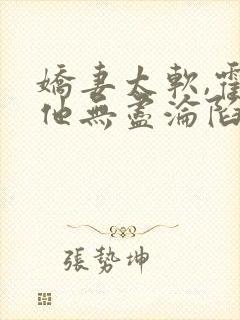 嬌妻太軟,霍
他無盡淪陷
張勢坤